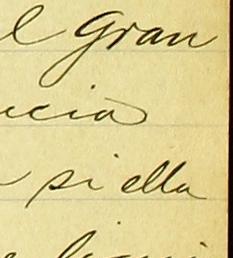 l gran
ucia
si ella